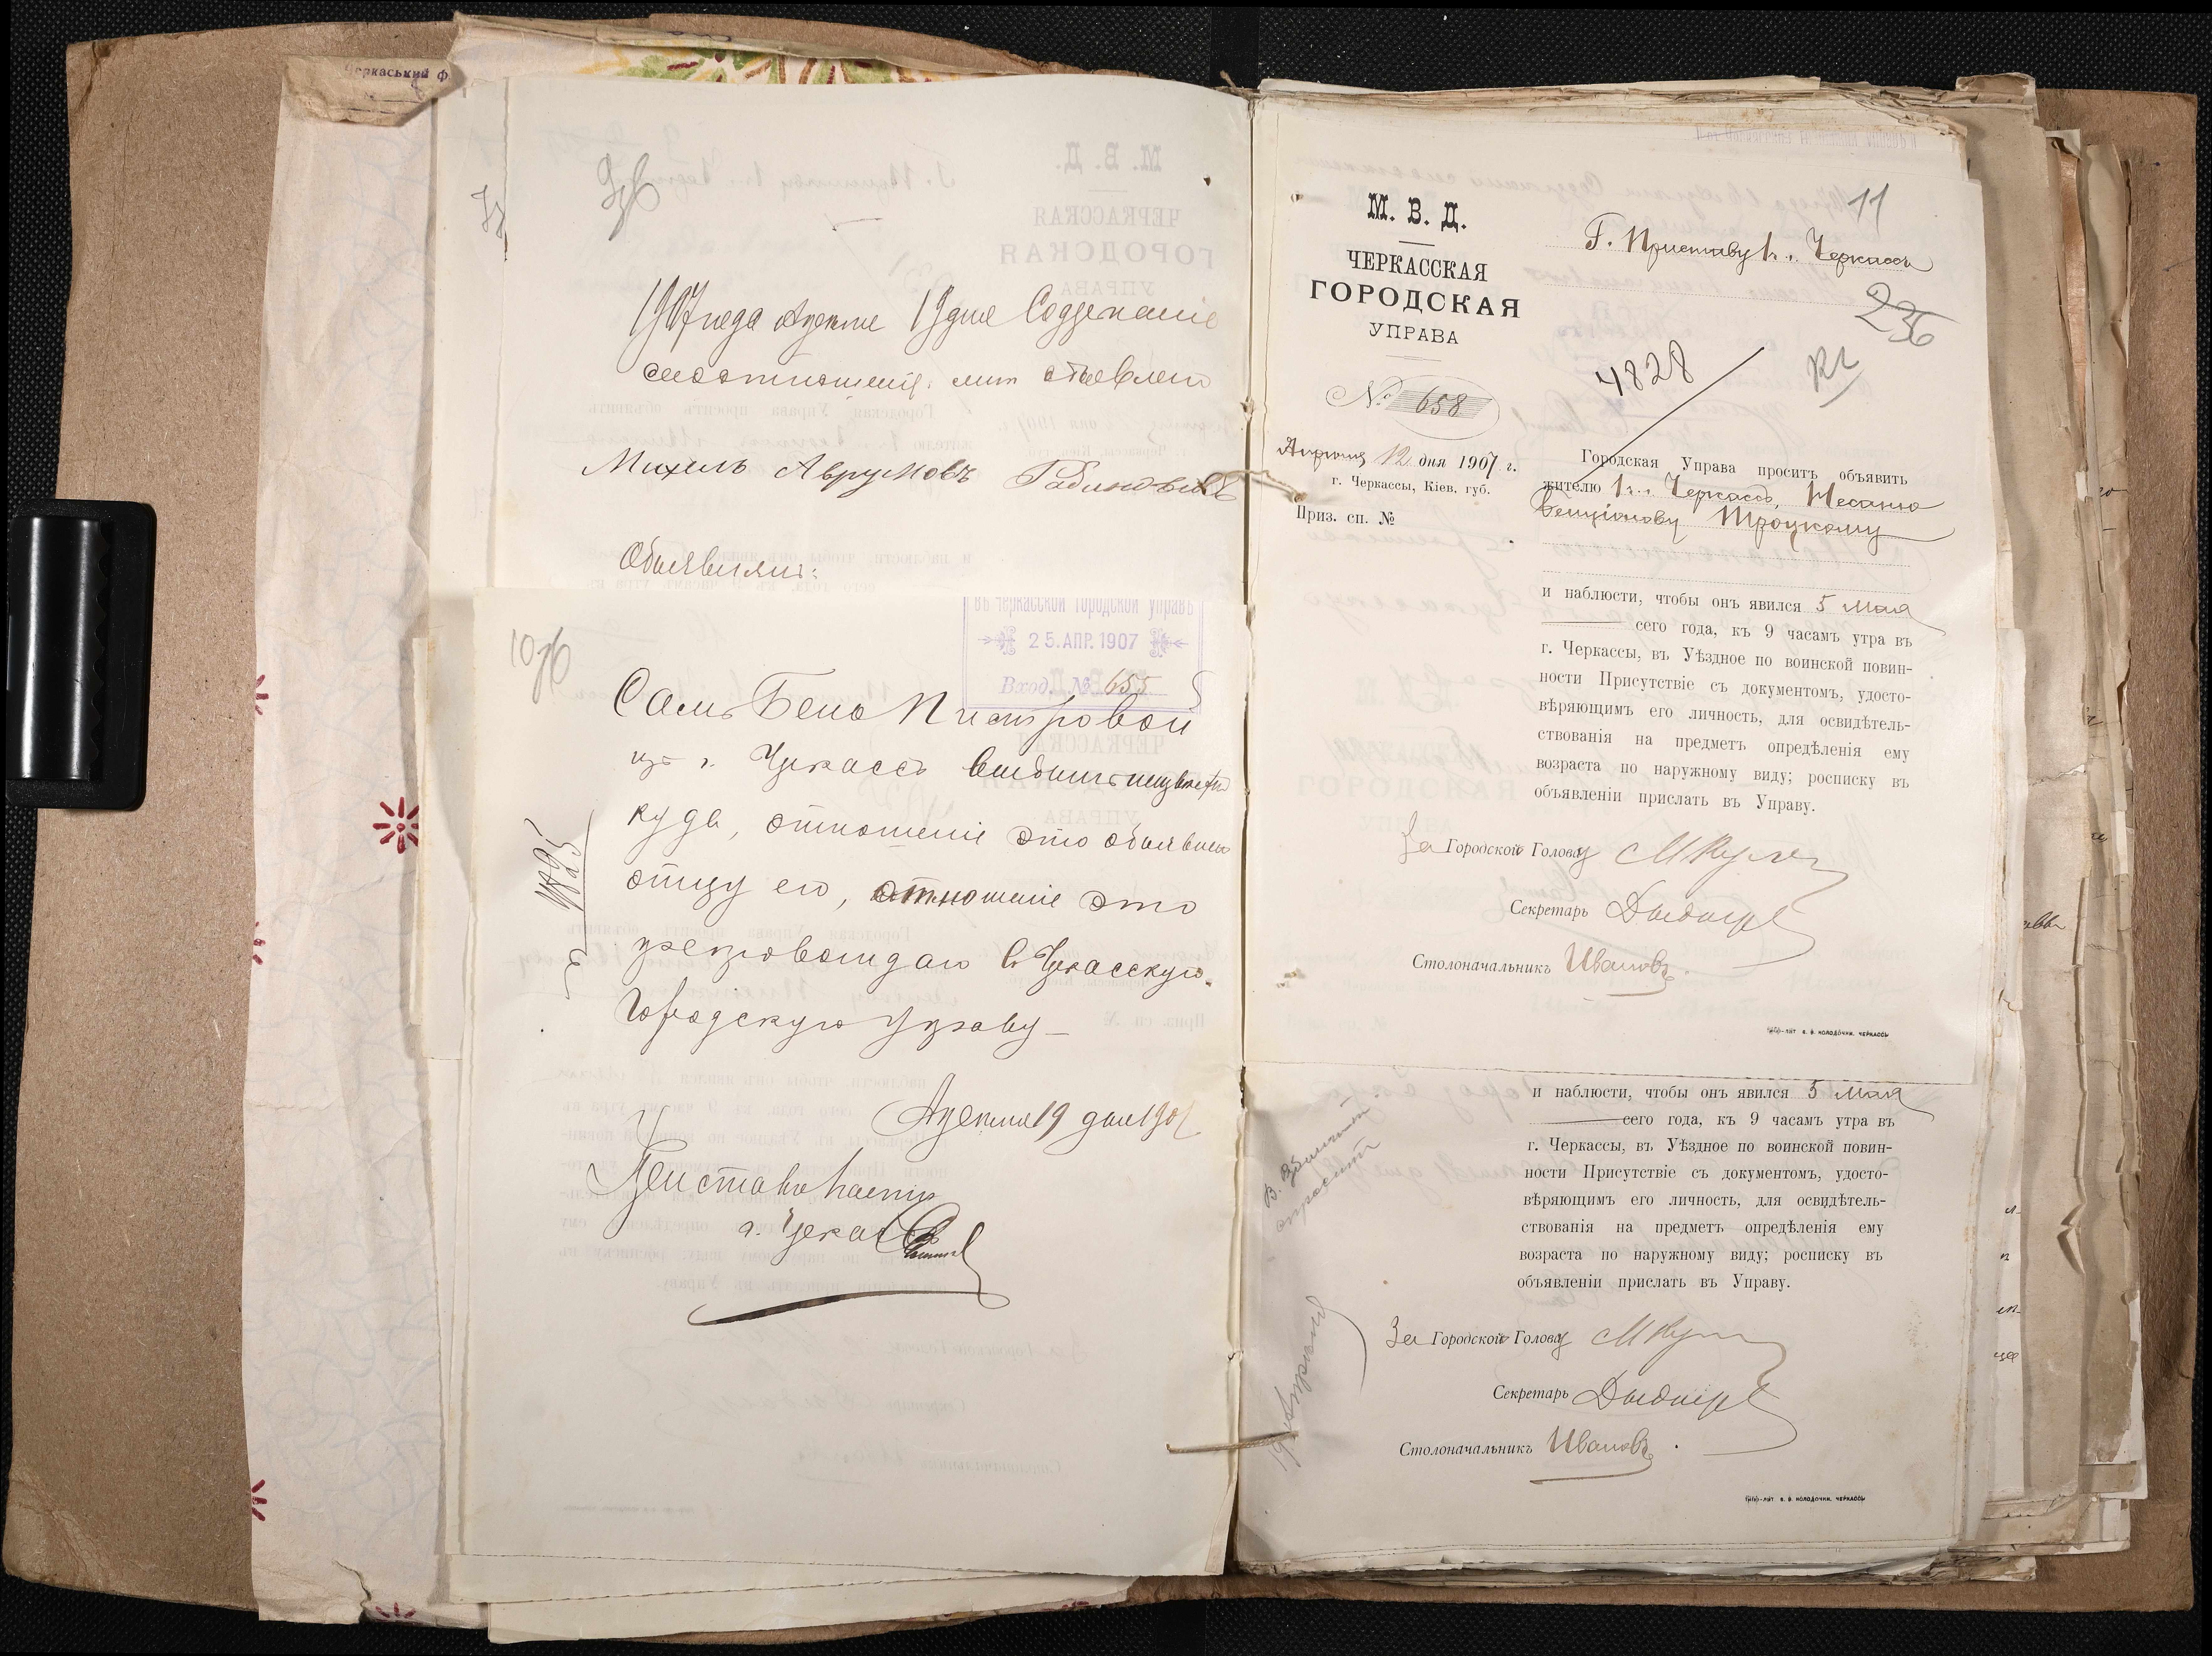 Черкаський ф
9об
1907 года Апреля 19 дня Содержание
сего отношения мне объявлено
Михель Аврумовъ Рабиновичъ
Объявилъ:
въ Черкасской Городской Управѣ
25. АПР. 1907
Вход. № 655
10об
Самъ Бено Пиотровой
изъ г. Черкассъ выбылъ неизвестно
куда, отношение это объявлено
отцу его, отношение это
препровождаю въ Черкасскую
Городскую Управу
4825
Апреля 19 дня 1907
Приставъ 1 части
г. Черкассъ
М. В. Д.
ЧЕРКАССКАЯ
ГОРОДСКАЯ
УПРАВА
№ 658
Апреля 12 дня 1907 г.
г. Черкассы, Кіев. губ.
Приз. сп. №
11
Г. Приставу 1 ч. г. Черкассъ
236
4828
Городская Управа проситъ объявить
жителю 1 ч. г. Черкассъ, Несаню
Бенціонову Троцкому
и наблюсти, чтобы онъ явился 5 Мая
сего года, къ 9 часамъ утра въ
г. Черкассы, въ Уѣздное по воинской повин-
ности Присутствіе съ документомъ, удосто-
вѣряющимъ его личность, для освидѣтель-
ствованія на предметъ опредѣленія ему
возраста по наружному виду; росписку въ
объявленіи прислать въ Управу.
За Городской Голову
Секретарь
Столоначальникъ Ивановъ.
Типо-лит В. В. КОЛОДОЧКИ. ЧЕРКАССЫ
и наблюсти, чтобы онъ явился 5 Мая
сего года, къ 9 часамъ утра въ
г. Черкассы, въ Уѣздное по воинской повин-
ности Присутствіе съ документомъ, удосто-
вѣряющимъ его личность, для освидѣтель-
ствованія на предметъ опредѣленія ему
возраста по наружному виду; росписку въ
объявленіи прислать въ Управу.
За Городской Голову
Секретарь
Столоначальникъ Ивановъ.
Типо-лит В. В. КОЛОДОЧКИ. ЧЕРКАССЫ
19 Апреля